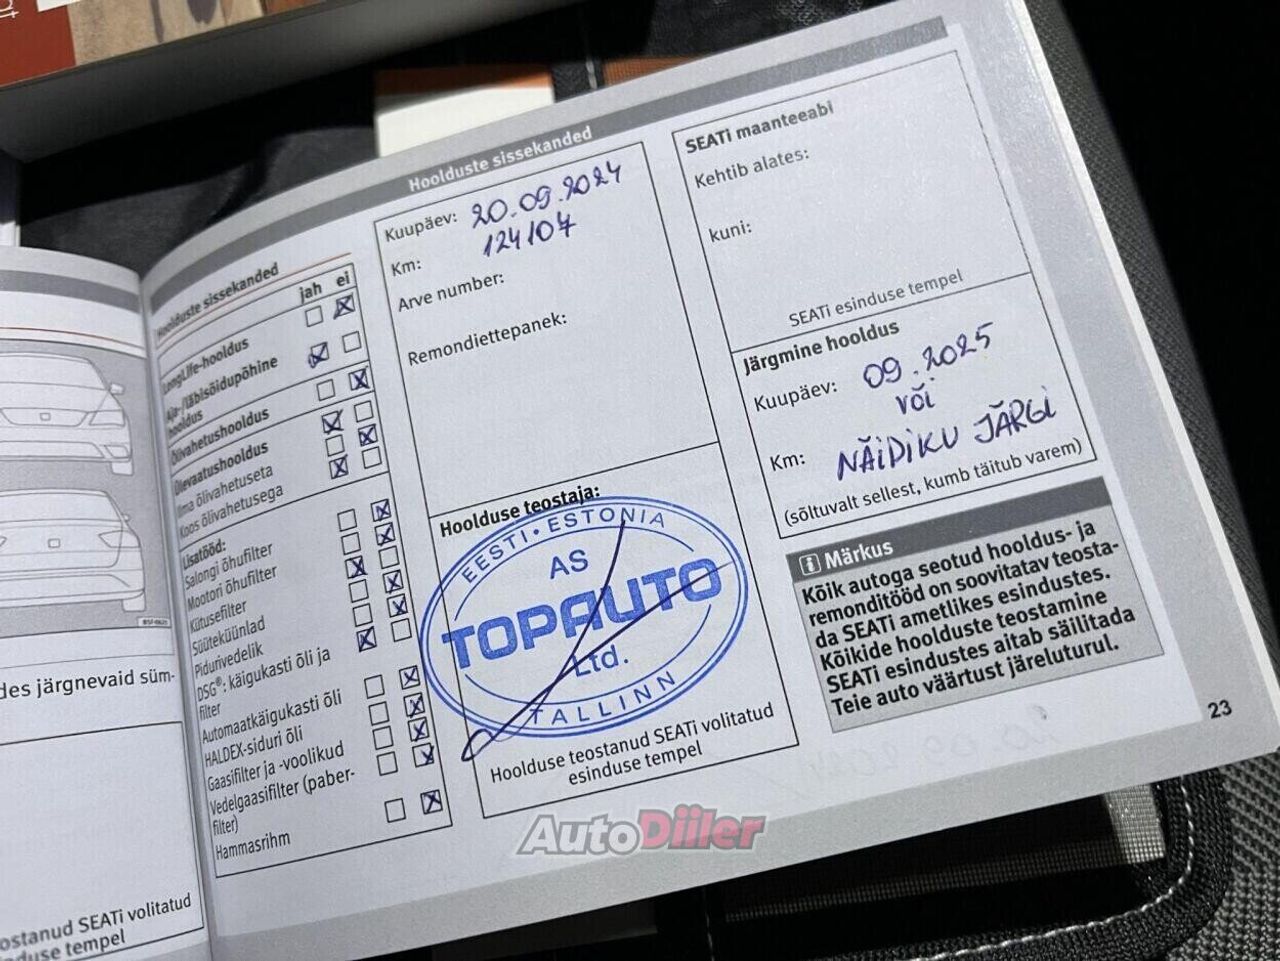 Hoolduste sissekanded
Hoolduste sissekanded
jah ei
LongLife-hooldus
Aja-/läbisõidupõhine
hooldus
Õlivahetushooldus
Ülevaatushooldus
Ilma õlivahetuseta
Koos õlivahetusega
Lisatööd:
Salongi õhufilter
Mootori õhufilter
Kütusefilter
Süüteküünlad
Pidurivedelik
DSG®: käigukasti õli ja
filter
Automaatkäigukasti õli
HALDEX-siduri õli
Gaasifilter ja -voolikud
Vedelgaasifilter (paber-
filter)
Hammasrihm
Kuupäev: 20.09.2024
Km: 124107
Arve number:
Remondiettepanek:
Hoolduse teostaja:
EESTI • ESTONIA
AS
TOPAUTO
Ltd.
TALLINN
Hoolduse teostanud SEATi volitatud
esinduse tempel
SEATi maanteeabi
Kehtib alates:
kuni:
SEATi esinduse tempel
Järgmine hooldus
Kuupäev: 09.2025
või
Km: NÄIDIKU JÄRGI
(sõltuvalt sellest, kumb täitub varem)
i Märkus
Kõik autoga seotud hooldus- ja
remonditööd on soovitatav teosta-
da SEATi ametlikes esindustes.
Kõikide hoolduste teostamine
SEATi esindustes aitab säilitada
Teie auto väärtust järeluturul.
23
des järgnevaid süm-
ostanud SEATi volitatud
nduse tempel
AutoDiiler